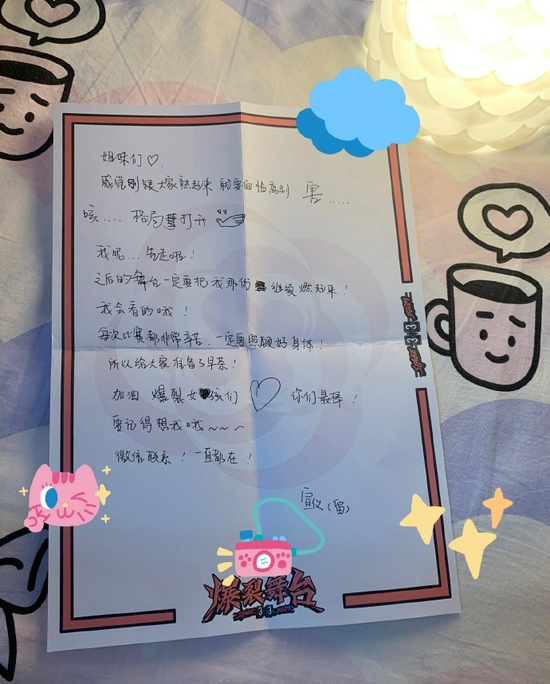 姐妹们♡
感觉刚跟大家熟起来 就要面临离别 害.....
咳.... 格局要打开
我呢... 先走啦！
之后的舞台一定要把我那份继续燃起来！
我会看的哦！
每次比赛都非常辛苦.一定要照顾好身体！
所以给大家准备了早茶！
加油 爆裂女孩们♡ 你们最棒！
要记得想我哦~~~
微信联系！一直都在！
宣仪(留)
爆裂舞台